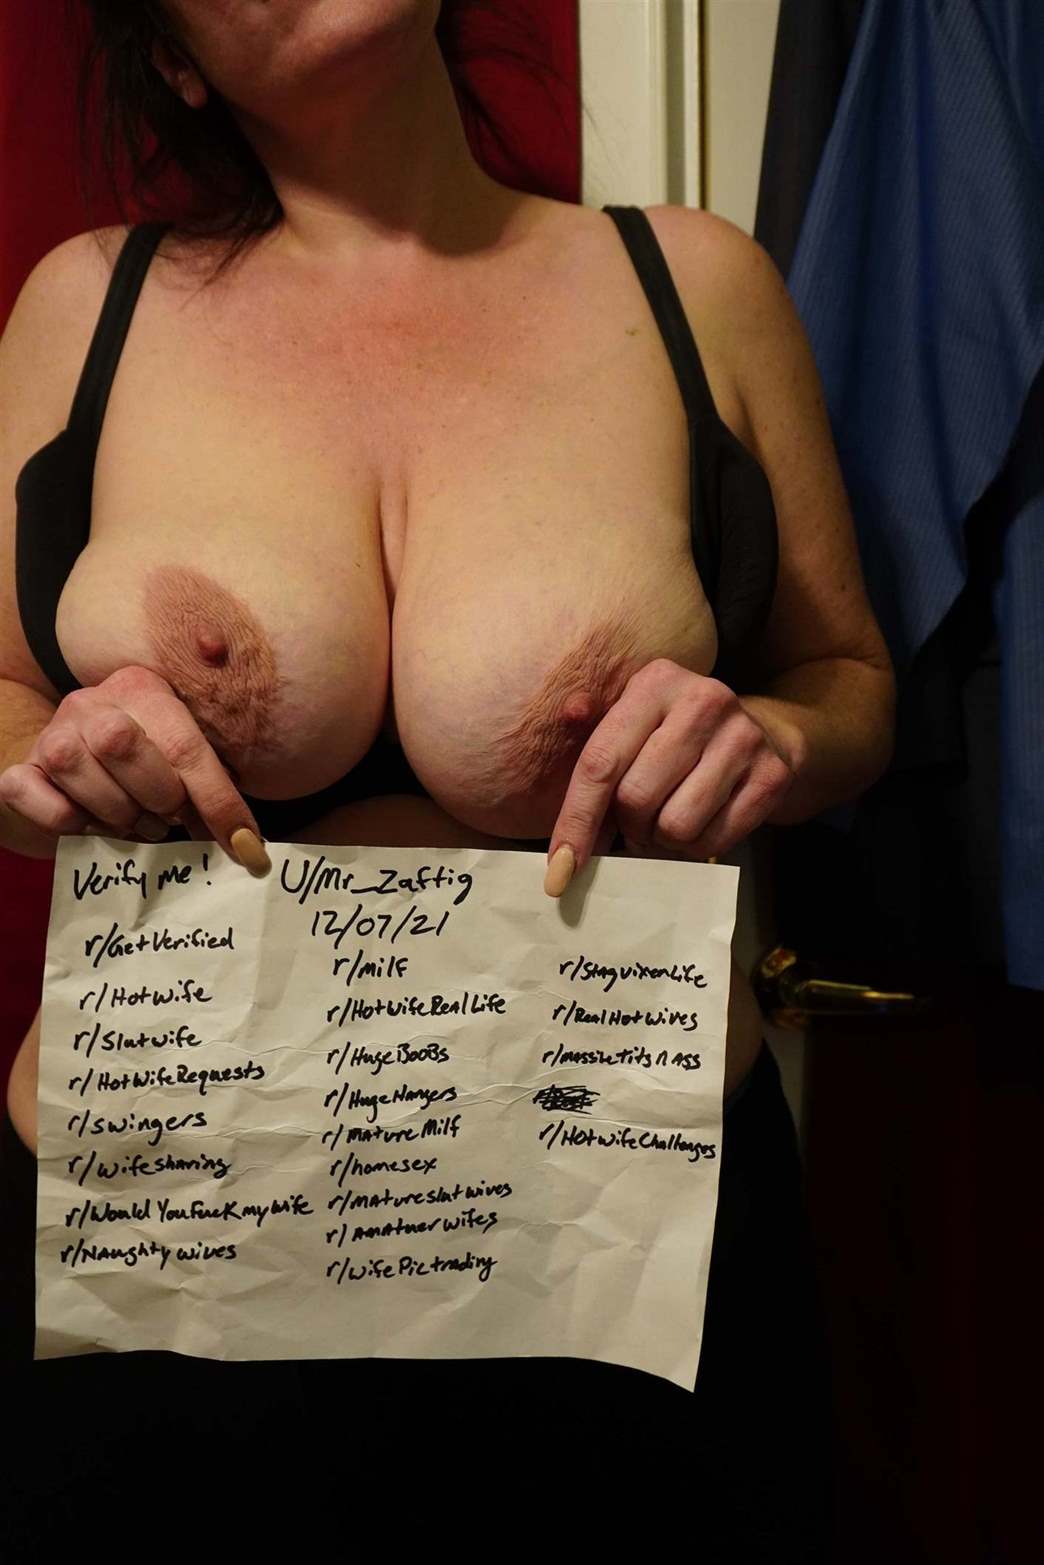 Verify me!
U/Mr_Zaftig
12/07/21
r/GetVerified
r/HotWife
r/Slutwife
r/HotWifeRequests
r/swingers
r/wifesharing
r/WouldYouFuckmywife
r/Naughtywives
r/milf
r/HotWifeRealLife
r/HugeBooBs
r/HugeHangers
r/matureMilf
r/homesex
r/matureslutwives
r/Amatuerwifes
r/wifePictrading
r/StagvixenLife
r/RealHotwives
r/massiveTitsnAss
r/HotwifeChallenges